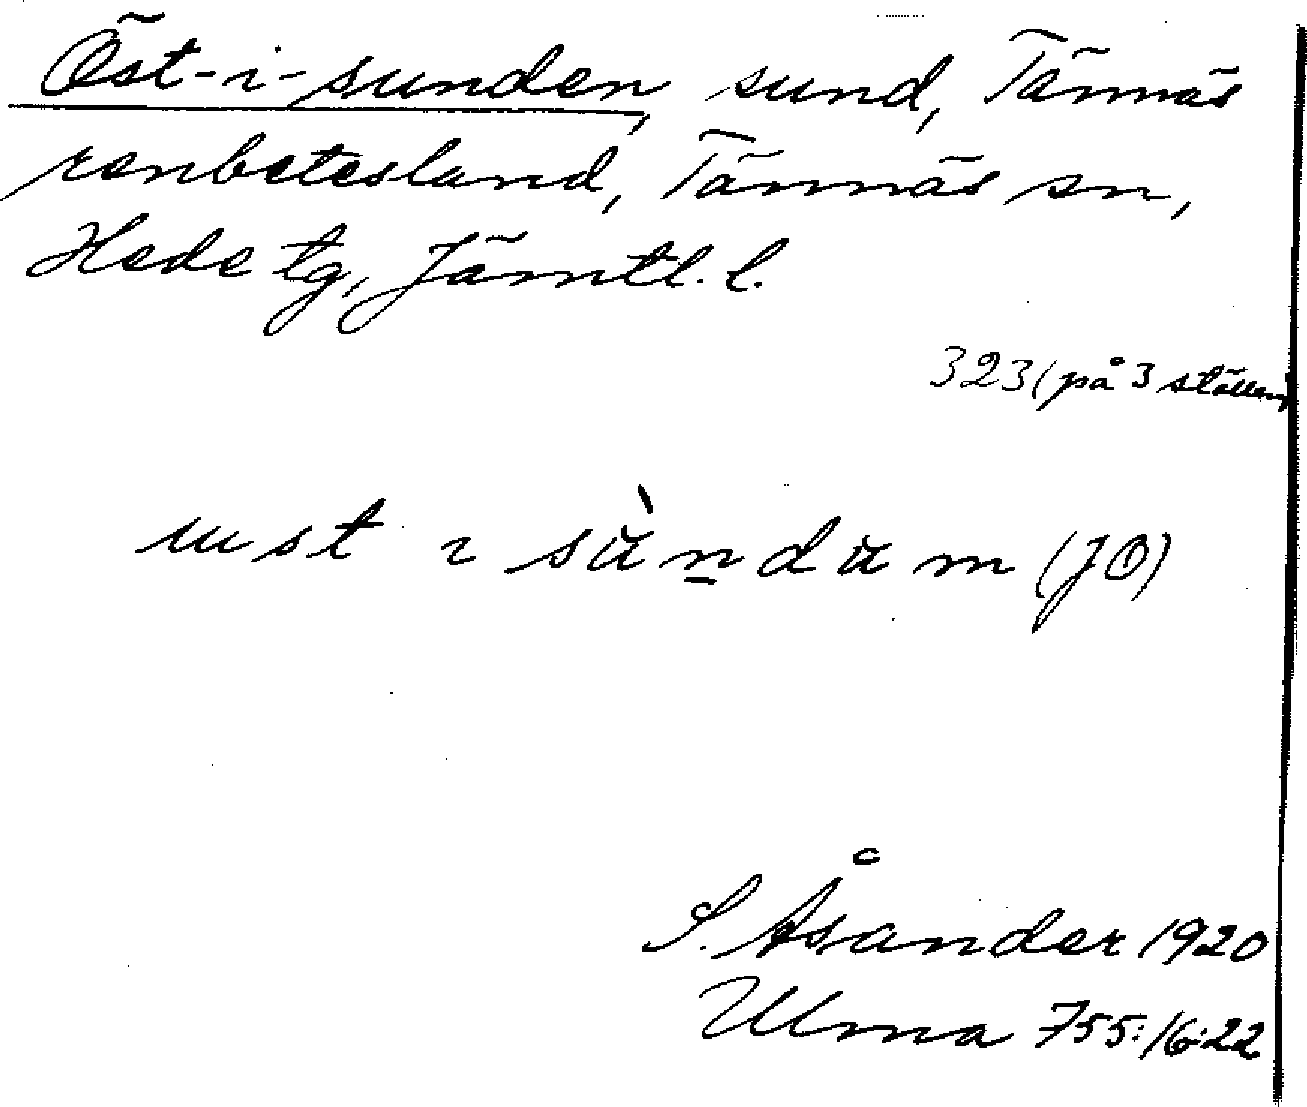 Öst-i-sunden, sund, Tännäs
renbetesland, Tännäs sn,
Hede tg, Jämtl. l.
323 (på 3 ställen)
st ı
(JO)
S. Åsander 1920
Ulma 755:16:22